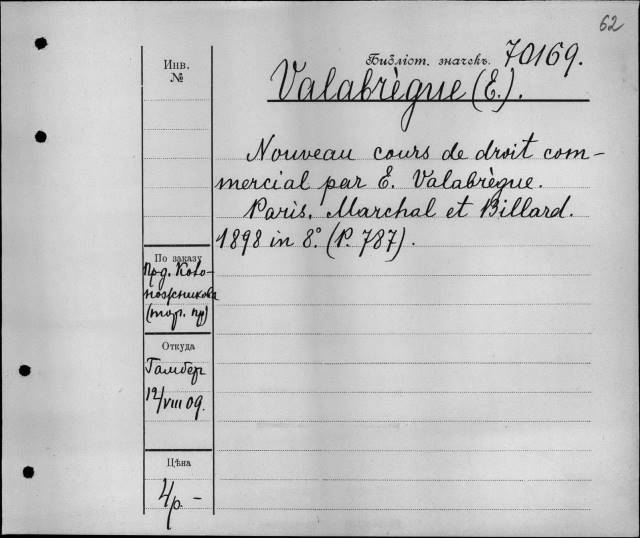 62
Библіот. значекъ 70169.
Инв.
№
Valabrègue (E.).
Nouveau cours de droit com-
mercial par E. Valabrègue.
Paris. Marchal et Billard.
1898 in 8° (P. 787).
По заказу
Прд.
(тор. пр)
Откуда
Гамбер
12/VIII 09.
Цѣна
4 р. -